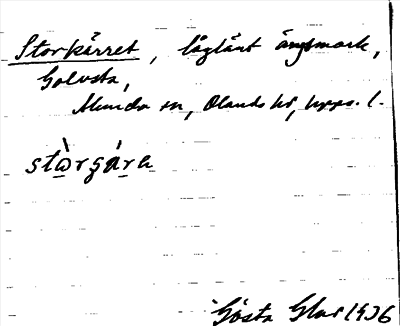 Storkärret, låglänt ängsmark,
Golvsta,
Alunda sn, Olands hd, Upps. l.
stωrʒára
Gösta Glar 1936